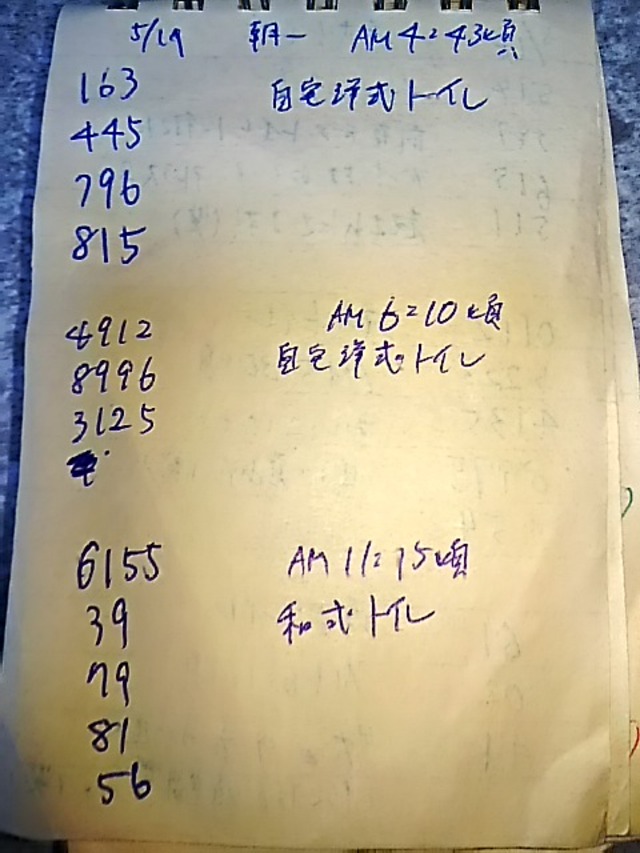 5/19 朝一 AM 4:43頃
163 自宅洋式トイレ
445
796
815
4912 AM 6:10頃
8996 自宅洋式トイレ
3125
6155 AM 11:15頃
39 和式トイレ
79
81
56